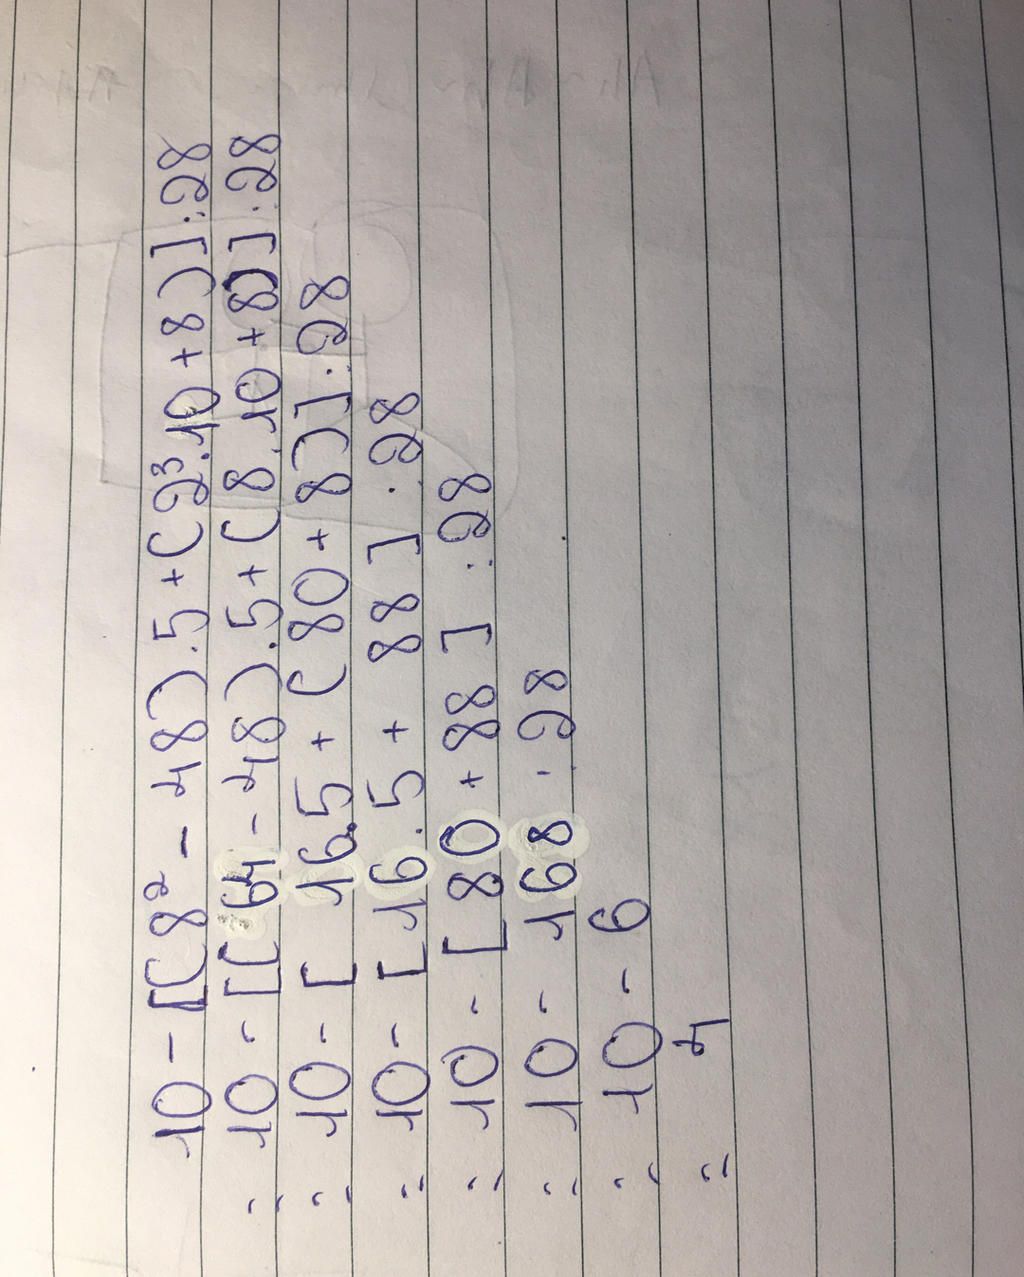 10 - [(8² - 48).5 + (2³.10 + 8)] : 28
= 10 - [(64 - 48).5 + (8.10 + 8)] : 28
= 10 - [16.5 + (80 + 8)] : 28
= 10 - [16.5 + 88] : 28
= 10 - [80 + 88] : 28
= 10 - 168 : 28
= 10 - 6
= 4